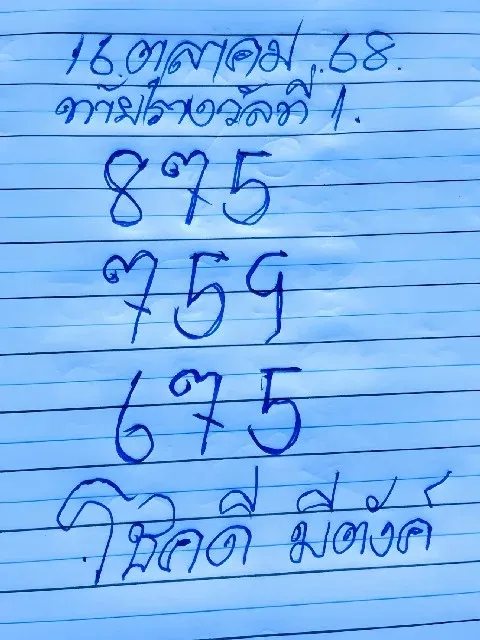 16 ตุลาคม 68.
ท้ายรางวัลที่ 1.
875
759
675
โชคดี มีตังค์